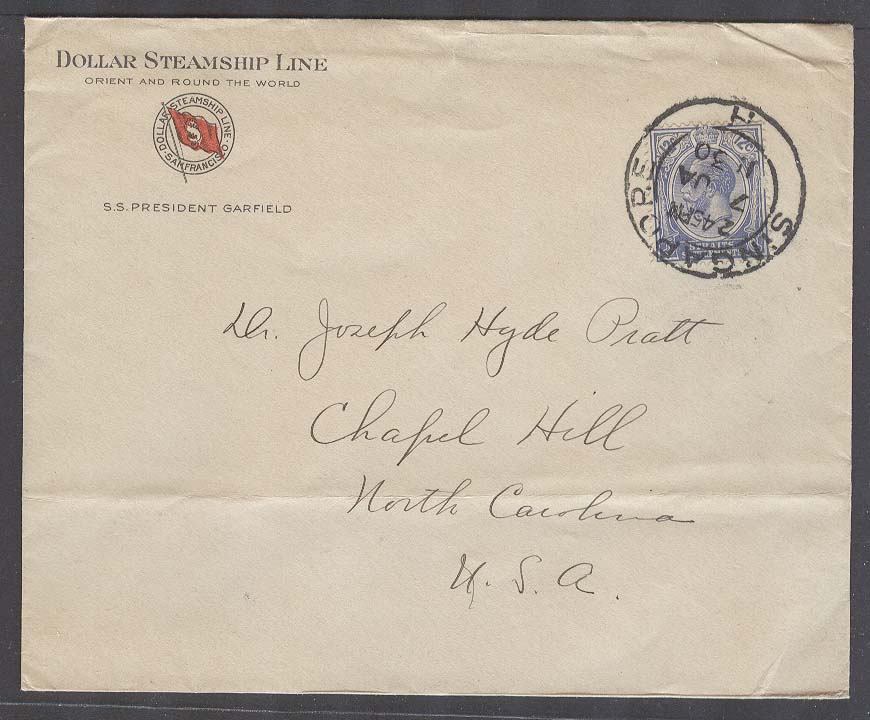 DOLLAR STEAMSHIP LINE
ORIENT AND ROUND THE WORLD
DOLLAR STEAMSHIP LINE
$
SAN FRANCISCO
S.S. PRESIDENT GARFIELD
SINGAPORE
2.45 PM
JA
30
12c 12c
STRAITS
SETTLEMENTS
Dr. Joseph Hyde Pratt
Chapel Hill
North Carolina
U. S. A.